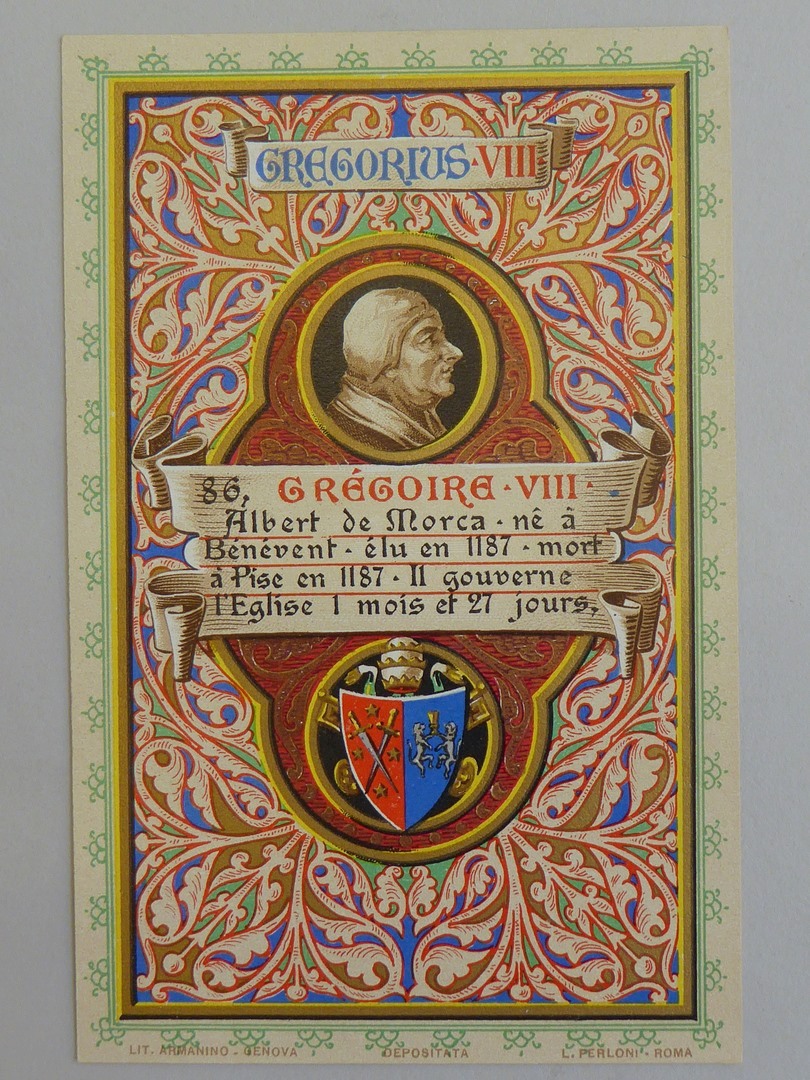 GREGORIUS·VIII·
86, GRÉGOIRE·VIII·
Albert de Morca·nê â
Bénévent·élu en 1187·mort
à Pise en 1187·Il gouverne
l'Eglise 1 mois et 27 jours.
LIT. ARMANINO - GENOVA DEPOSITATA L. PERLONI - ROMA